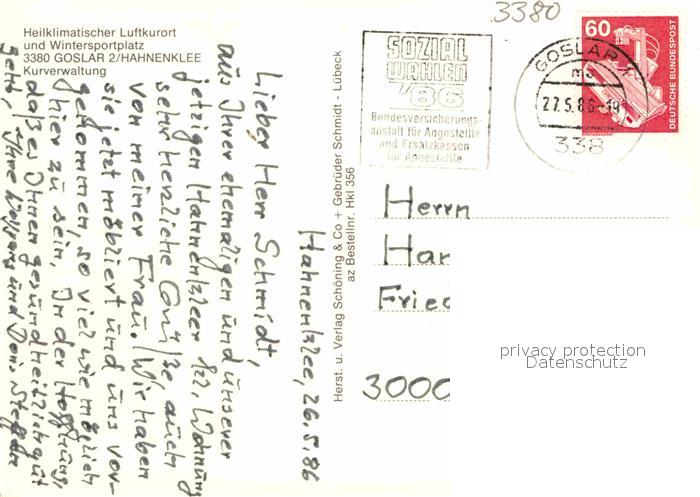 Heilklimatischer Luftkurort
und Wintersportplatz
3380 GOSLAR 2/HAHNENKLEE
Kurverwaltung
Hahnenklee, 26.5.86
Lieber Herr Schmidt,
aus Ihrer ehemaligen und unserer
jetzigen Hahnenkleer Wohnung
sehr herzliche Grüße auch
von meiner Frau. Wir haben
sie jetzt möbliert und uns vor-
genommen, so viel wie möglich
hier zu sein. In der Hoffnung,
daß es Ihnen gesundheitlich gut
geht, Ihre Wolfgang und Doris
Herst. u. Verlag Schöning & Co + Gebrüder Schmidt - Lübeck
az Bestellnr. HKl 356
3380
SOZIAL
WAHLEN
'86
Bundesversicherungs-
anstalt für Angestellte
und Ersatzkassen
für Angestellte
GOSLAR 1
mc
27.5.86-19
338
60
DEUTSCHE BUNDESPOST
Herrn
Har
Fried
3000
privacy protection
Datenschutz